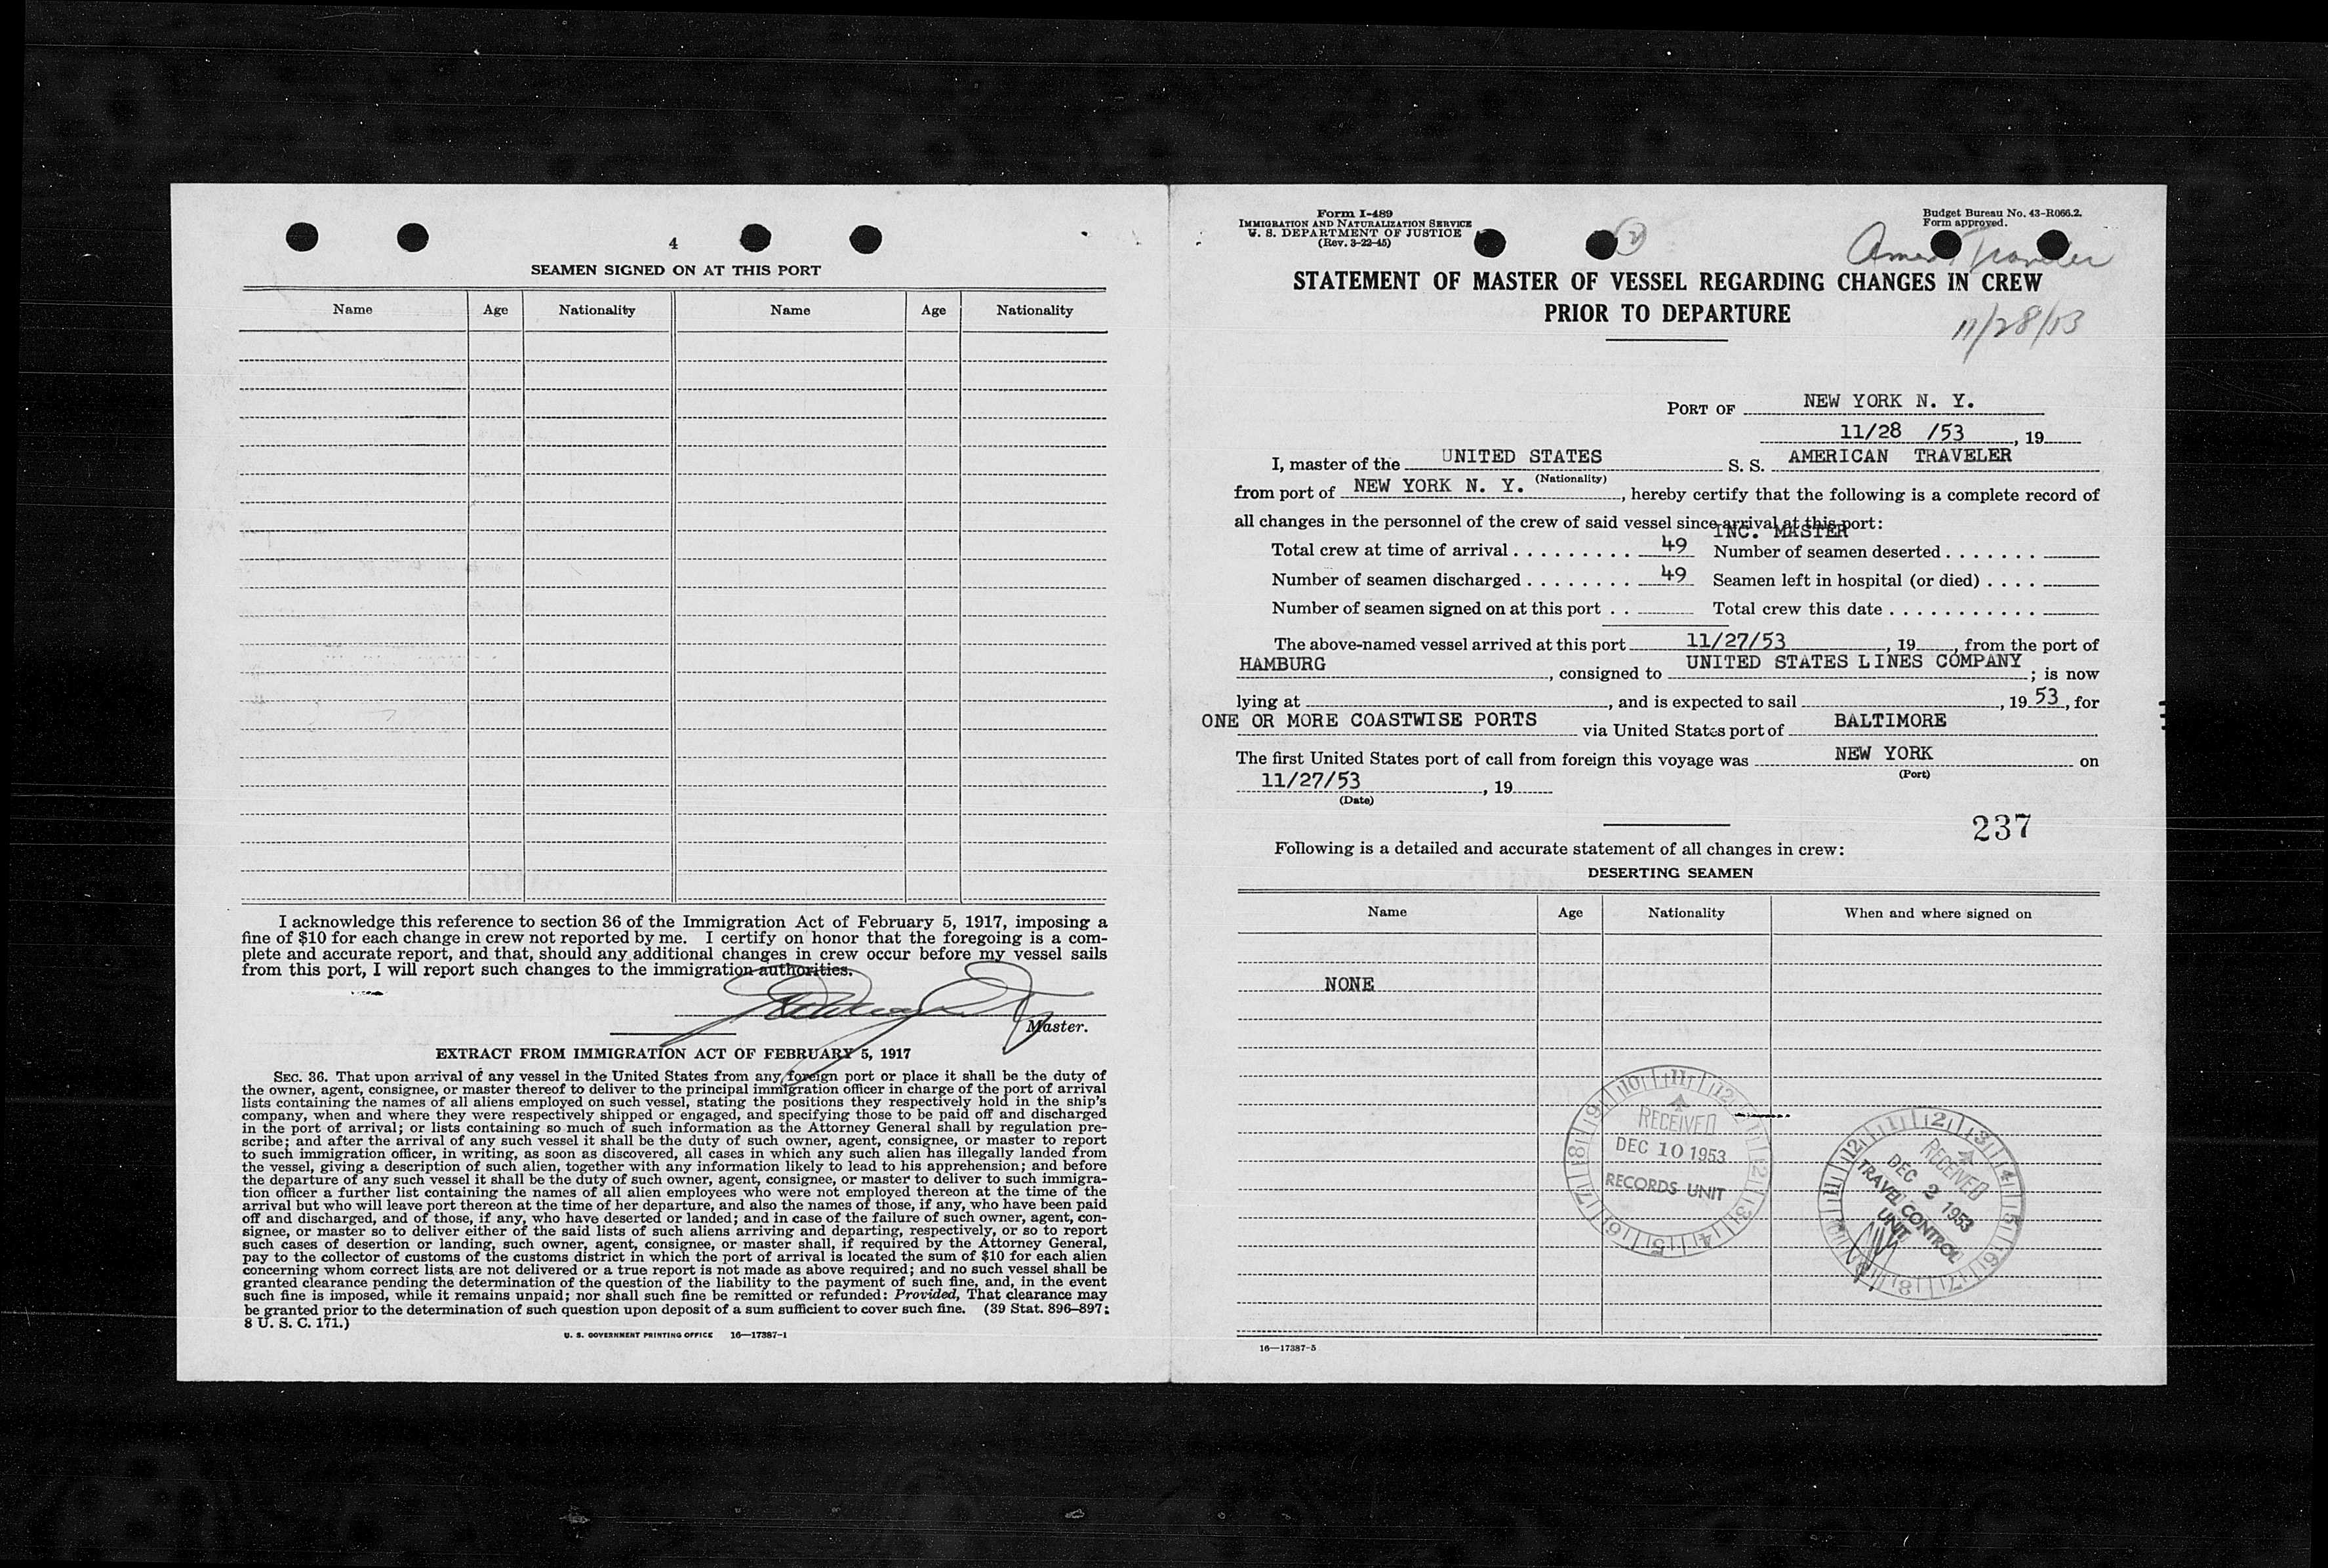 4
SEAMEN SIGNED ON AT THIS PORT
Name Age Nationality Name Age Nationality
I acknowledge this reference to section 36 of the Immigration Act of February 5, 1917, imposing a
fine of $10 for each change in crew not reported by me. I certify on honor that the foregoing is a com-
plete and accurate report, and that, should any additional changes in crew occur before my vessel sails
from this port, I will report such changes to the immigration authorities.
Master.
EXTRACT FROM IMMIGRATION ACT OF FEBRUARY 5, 1917
SEC. 36. That upon arrival of any vessel in the United States from any foreign port or place it shall be the duty of
the owner, agent, consignee, or master thereof to deliver to the principal immigration officer in charge of the port of arrival
lists containing the names of all aliens employed on such vessel, stating the positions they respectively hold in the ship's
company, when and where they were respectively shipped or engaged, and specifying those to be paid off and discharged
in the port of arrival; or lists containing so much of such information as the Attorney General shall by regulation pre-
scribe; and after the arrival of any such vessel it shall be the duty of such owner, agent, consignee, or master to report
to such immigration officer, in writing, as soon as discovered, all cases in which any such alien has illegally landed from
the vessel, giving a description of such alien, together with any information likely to lead to his apprehension; and before
the departure of any such vessel it shall be the duty of such owner, agent, consignee, or master to deliver to such immigra-
tion officer a further list containing the names of all alien employees who were not employed thereon at the time of the
arrival but who will leave port thereon at the time of her departure, and also the names of those, if any, who have been paid
off and discharged, and of those, if any, who have deserted or landed; and in case of the failure of such owner, agent, con-
signee, or master so to deliver either of the said lists of such aliens arriving and departing, respectively, or so to report
such cases of desertion or landing, such owner, agent, consignee, or master shall, if required by the Attorney General,
pay to the collector of customs of the customs district in which the port of arrival is located the sum of $10 for each alien
concerning whom correct lists are not delivered or a true report is not made as above required; and no such vessel shall be
granted clearance pending the determination of the question of the liability to the payment of such fine, and, in the event
such fine is imposed, while it remains unpaid; nor shall such fine be remitted or refunded: Provided, That clearance may
be granted prior to the determination of such question upon deposit of a sum sufficient to cover such fine. (39 Stat. 896-897;
8 U. S. C. 171.)
U. S. GOVERNMENT PRINTING OFFICE 16—17387-1
Form I-489
IMMIGRATION AND NATURALIZATION SERVICE
U. S. DEPARTMENT OF JUSTICE
(Rev. 3-22-45)
2
Budget Bureau No. 43-R066.2.
Form approved.
Amer Traveler
STATEMENT OF MASTER OF VESSEL REGARDING CHANGES IN CREW
PRIOR TO DEPARTURE
11/28/53
PORT OF NEW YORK N. Y.
11/28 /53, 19
I, master of the UNITED STATES S. S. AMERICAN TRAVELER
(Nationality)
from port of NEW YORK N. Y., hereby certify that the following is a complete record of
all changes in the personnel of the crew of said vessel since arrival at this port:
INC. MASTER
Total crew at time of arrival . . . . . . . . . 49 Number of seamen deserted . . . . . . .
Number of seamen discharged . . . . . . . . 49 Seamen left in hospital (or died) . . . .
Number of seamen signed on at this port . . Total crew this date . . . . . . . . . . . .
The above-named vessel arrived at this port 11/27/53, 19, from the port of
HAMBURG, consigned to UNITED STATES LINES COMPANY; is now
lying at , and is expected to sail , 19 53, for
ONE OR MORE COASTWISE PORTS via United States port of BALTIMORE
The first United States port of call from foreign this voyage was NEW YORK on
(Port)
11/27/53, 19
(Date)
237
Following is a detailed and accurate statement of all changes in crew:
DESERTING SEAMEN
Name Age Nationality When and where signed on
NONE
RECEIVED
DEC 10 1953
RECORDS UNIT
10 11 12 1 2 3 4 5 6 7 8 9
RECEIVED
DEC 2 1953
TRAVEL CONTROL
UNIT
12 1 2 3 4 5 6 7 8 9 10 11
16—17387-5